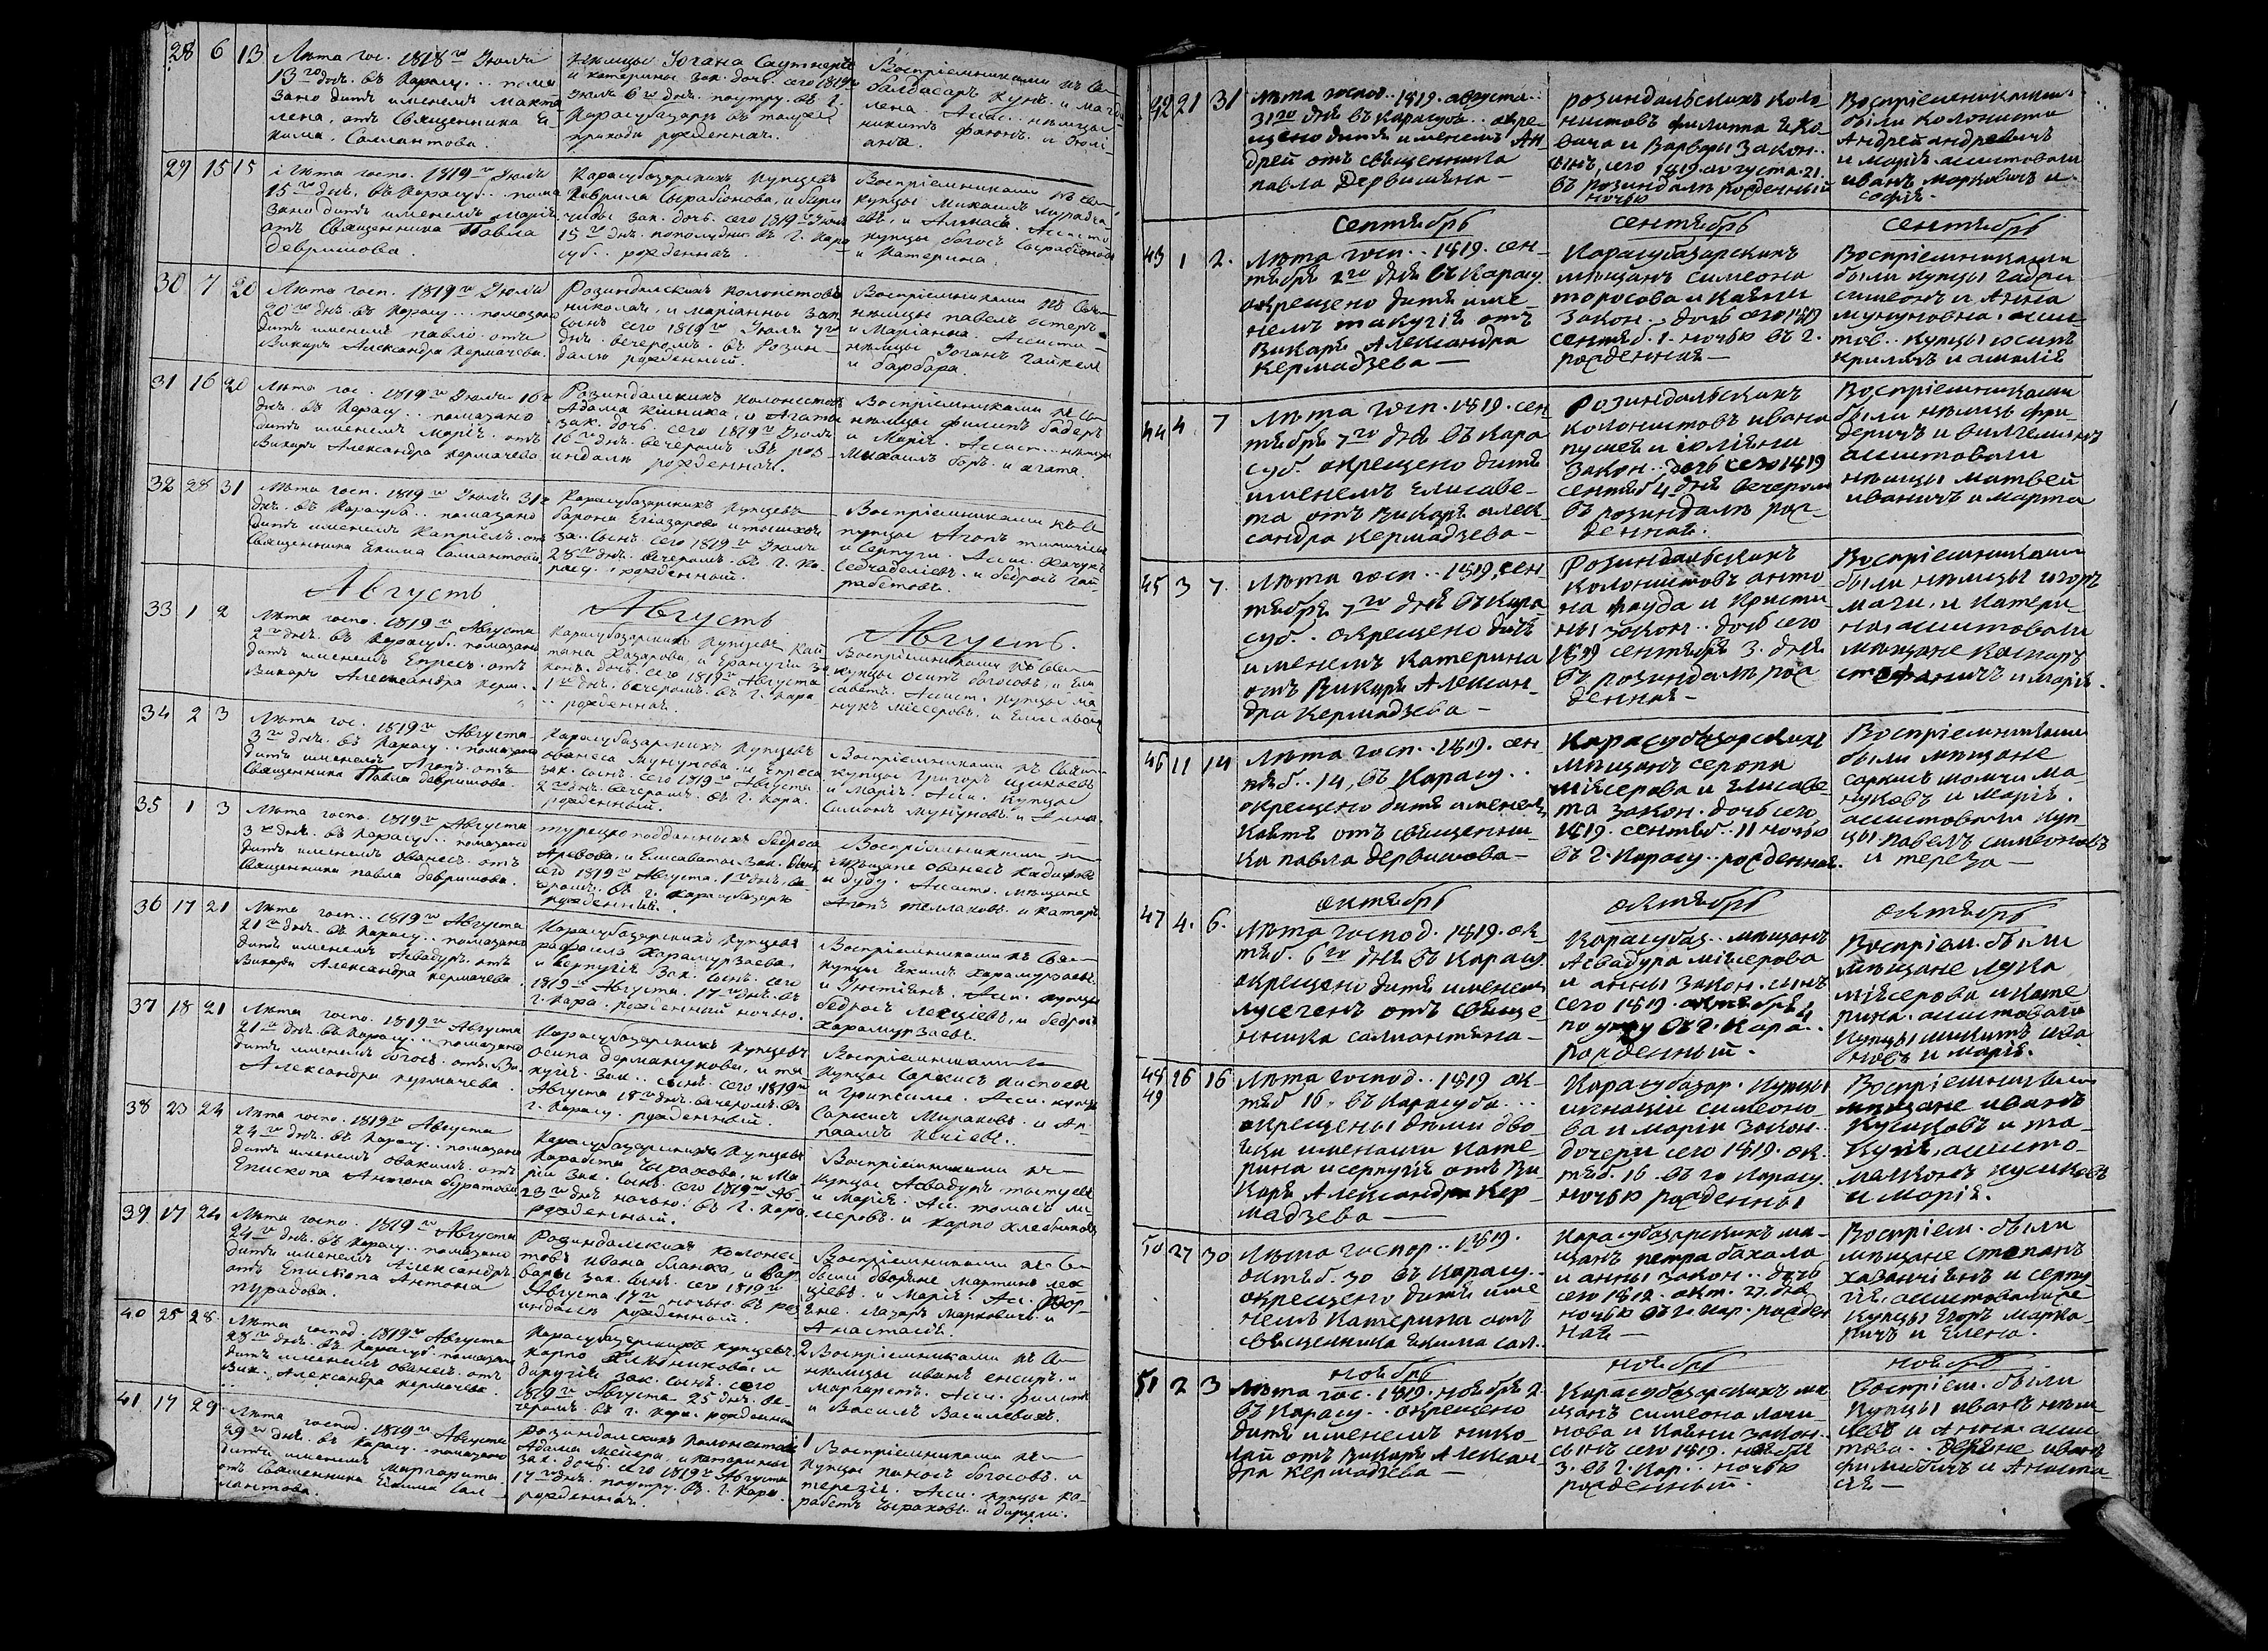 28 6 13
Лѣта гос. 1818го Іюля
13го дня. въ Карасу... пома
зано дитя именемъ Магта
лена, отъ Священника Е
кима Салмантова.
нѣмцы Іогана
и катерины зак. дочь. сего 1819го
Іюля 6го дня. поутру. въ г.
Карасубазарѣ въ
приходѣ рожденная.
Воспріемниками
балдасаръ Кунъ. и Магда
лена. Асис. нѣмцы
никитъ и Юлі
ана.
29 15 15
Лѣта госпо. 1819го Іюля
15го дня. въ Карасуб.. пома
зано дитя именемъ Марія
отъ Священника Павла
Девришова.
Карасубазарскихъ Купцевъ
Гаврила Сырабіонова, и
зак. дочь. сего 1819го Іюля
15го дня. пополудни. въ г. Кара
суб.. рожденная.
Воспріемниками
купцы Михаилъ
и Алмаста. Ассисто.
купцы богосъ Сырабіоновъ
и Катерина.
30 7 20
Лѣта госп. 1819го Іюля
20го дня. въ Карасу... помазано
дитя именемъ Павло. отъ
Викарія Александра Кермачева.
Розиндалскихъ Колонистовъ
николая, и маріанны зак.
сынъ сего 1819го Іюля 7го
дня. вечеромъ. въ Розин-
далѣ рожденный.
Воспріемниками
нѣмцы павелъ остеръ
и Маріанна. Ассиста-
нѣмцы Іоганъ Гайкелъ
и барбара.
31 16 20
Лѣта гос. 1819го Іюля 16го
дня. въ Карасу.. помазано
дитя именемъ Марія. отъ
Викарія Александра Кермачева
Розиндалскихъ Колонистовъ
Адама и Агаты
зак. дочь. сего 1819го Іюля
16го дня. вечеромъ. въ роз-
индалѣ рожденная.
Воспріемниками
нѣмцы филипъ бадеръ
и Марія. Ассист... нѣмцы
Михаилъ боръ. и агата.
32 28 31
Лѣта госп. 1819го Іюля 31го
дня. въ Карасуб... помазано
дитя именемъ Капріелъ. отъ
Священника Екима Салмантова
Карасубазарскихъ Купцевъ
барона Егіазарова
за.. сынъ. сего 1819го Іюля
28го дня. вечеромъ. въ г. Ка
расу.. рожденный.
Воспріемниками
купцы Агопъ
и Серпуги. Асси.
и бедросъ
33 1 2
Августъ
Лѣта госпо. 1819го Августа
2го дня. въ Карасуб.. помазано
дитя именемъ Епресъ. отъ
Викарія Александра Керм..
Августъ
Карасубазарскихъ Купцевъ
Хазарова, и
зак. дочь. сего 1819го Августа
1го дня. вечеромъ. въ г. Кара
.. рожденная.
Августъ.
Воспріемниками
купцы осипъ богосовъ, и Ели
саветъ. Ассист. купцы
и Елисавета
34 2 3
Лѣта гос. 1819го Августа
3го дня. въ Карасу.. помазано
дитя именемъ Агопъ. отъ
Священника Павла Девришова.
Карасубазарскихъ Купцевъ
ованеса Мунунова. и Епреса
зак. сынъ. сего 1819го Августа
2го дня. вечеромъ. въ г. Кара.
рожденный.
Воспріемниками
купцы Григоръ
и Марія. Асси. Купцы
Симонъ Мунуновъ. и Анна.
35 1 3
Лѣта госпо. 1819го Августа
3го дня. въ Карасуб... помазано
дитя именемъ ованесъ. отъ
Священника павла Девришова.
турецкоподданныхъ бедроса
Аревова. и Елисаветы. зак. сынъ
сего 1819го Августа. 1го дня. ве
черомъ. въ г. Карасубазарѣ
рожденный.
Воспріемниками
мѣщане ованесъ
и дуду. Ассисто. мѣщане
Агопъ и катаръ
36 17 21
Лѣта госп.. 1819го Августа
21го дня. въ Карасу.. помазано
дитя именемъ Асвадуръ. отъ
Викарія Александра Кермачева.
Карасубазарскихъ Купцевъ
рафаела Харамурзаева.
и Серпугіи зак. сынъ. сего
1819го Августа. 17го дня. въ
г. Кара. рожденный ночью.
Воспріемниками
купцы Екимъ Харамурзаевъ.
и Асси. купцы
бедросъ и бедросъ
Харамурзаевъ.
37 18 21
Лѣта госпо. 1819го Августа
21го дня. въ Карасу... помазано
дитя именемъ богосъ. отъ Ви
Александра Кермачева.
Карасубазарскихъ Купцевъ
осипа и та
кугіи. зак... сынъ. сего 1819го
Августа 18го дня. вечеромъ. въ
г. Карасу. рожденный.
Воспріемниками
Купцы Саркисъ
и Грипсиме. Асси. купцы
Саркисъ Мираковъ. и Ап-
38 23 24
Лѣта госпо. 1819го Августа
24го дня. въ Карасу.. помазано
дитя именемъ овакимъ. отъ
Епископа Антона Нуратова
Карасубазарскихъ Купцевъ
Карабета Чыракова, и Ма
ріи зак. сынъ. сего 1819го Ав-
23го дня. ночью. въ г. Кара
рожденный.
Воспріемниками
купцы Асвадуръ
и Марія. Асс. томасъ
и карпо
39 17 24
Лѣта госпо. 1819го Августа
24го дня. въ Карасу.. помазано
дитя именемъ Александръ.
отъ Епископа Антона
Нурадова.
Розиндалскихъ Колонис
товъ Ивана бланка, и Вар
вары зак. сынъ. сего 1819го
Августа 17го ночью. въ ро
индалѣ рожденный.
Воспріемниками
были дворяне Мартинъ
и Марія. Ас. Двор-
яне. Лазаръ Марковичъ и
Анастасія.
40 25 28
Лѣта господ. 1819го Августа
28го дня. въ Карасуб. помазано
дитя именемъ ованесъ. отъ
Вик. Александра Кермачева.
Карасубазарскихъ купцевъ.
карпо и
зак. сынъ. сего
1819го Августа. 25 дня. ве-
черомъ. въ г. Кара. рожденный
2 Воспріемниками
нѣмцы иванъ и
маргаретъ. Асси. филипъ
и Василъ Василевыхъ.
41 17 29
Лѣта господ. 1819го Августа
29го дня. въ Карасу... помазано
дитя именемъ Маргарита.
отъ Священника Екима Сал-
мантова.
Розиндалскихъ Колонистовъ
Адама Мейера, и катарины
зак. дочь. сего 1819го Августа
17го дня. поутру. въ г. Кара.
рожденная.
1 Воспріемниками
Купцы богосовъ. и
терезія. Асси. купцы ка-
рабетъ Чыраковъ. и
42 21 31
Лѣта господ.. 1819. августа..
31го дня въ карасуб.. окре-
щено дитя именемъ Ан
дрей отъ священника
павла Дервишяна —
розиндальскихъ Коло
нистовъ филиппа Яко
бича и Варвары закон..
сынъ, сего 1819. августа. 21.
въ розиндалѣ рожденный
ночью
Воспріемниками.
были колонисты
Андрей андреевичъ
и марія. асистовали
иванъ марковичъ и
софія.
сентябрь
сентябрь
сентябрь
43 1 2.
Лѣта госп.. 1819. сен-
тября 2го дня въ карасу
окрещено дитя име-
немъ такугія отъ
Викарія Александра
Кермадзева —
Карасубазарскихъ
мѣщанъ симеона
торосова и Каяни
закон.. дочь сего 1819
сентяб. 1. ночью въ г.
рожденная —
Воспріемниками
были купцы габри
симеонъ и Анна
мунуновна. асси-
тов.. купцы юсипъ
и
44 4 7
Лѣта госп. 1819. сен-
тября 7го дня въ кара
суб. окрещено дитя
именемъ Елисаве-
та отъ Викарія алек-
сандра Кермадзева —
Розиндальскихъ
колонистовъ ивана
и іюліяни
закон.. дочь сего 1819
сентяб 4 дня вечером
въ розиндалѣ рож-
денная.
Воспріемниками
были нѣмцъ фри-
дерихъ и вилгелмина
ассистовали
нѣмцы матвей
иваничъ и марта
45 3 7.
Лѣта госп.. 1819, сен-
тября 7го дня въ кара-
суб. окрещено дитя
именемъ катерина
отъ Викарія Алексан-
дра Кермадзева —
Розиндальскихъ
колонистовъ анто
на фауда и Кристи-
ны закон.. дочь сего
1819 сентября 3. дня
въ розиндалѣ рож
денная —
Воспріемниками
были нѣмцы
и Катери-
на, ассистовали
мѣщане Каспаръ
стефаничъ и марія.
46 11 14
Лѣта госп.. 1819. сен-
тяб. 14, въ Карасу..
окрещено дитя именем
отъ священни-
ка павла дервишова —
Карасубазарскихъ
мѣщанъ серопа
міесерова и Елисаве-
та закон. дочь сего,
1819. сентяб. 11 ночью
въ г. Карасу.. рожденная.
Воспріемниками
были мѣщане
саркисъ ма
нуковъ и марія.
ассистовали куп-
цы. павелъ симеоновъ
и тереза —
октябрь
октябрь
октябрь
47 4. 6.
Лѣта господ. 1819. ок-
тяб. 6го дня въ Карасу
окрещено дитя именем
лусегенъ отъ свяще-
нника салмантяна —
Карасубаз.. мѣщанъ
Асвадура міесерова
и анны закон. сынъ
сего 1819. октября 4
по утру въ г. Кара..
рожденный.
Воспріем. были
мѣщане лука
міесерова и кате
рина. ассистовали
купцы никитъ ива
новъ и марія.
48
49
16 16
Лѣта господ.. 1819 ок-
тяб 16. въ Карасуба...
окрещены дѣти дво-
йки именами кате-
рина и серпугія отъ Ви
карія Александра Кер-
мадзева —
Карасубазар. купцы
игнація симеоно-
ва и маріи закон..
дочери сего 1819. ок.
тяб. 16 въ го Карасу.
ночью рожденны
Воспріемниками
мѣщане иванъ
Кусиковъ и та-
кугія, ассисто-
малконъ кусиковъ
и марія.
50 27 30
Лѣта господ.. 1819.
октяб. 30 въ Карасу..
окрещено дитя име
немъ катерина отъ
священника Екима сал..
Карасубазарскихъ мѣ-
щанъ петра бахала
и анны закон.. дочь
сего 1812. окт. 27. дня
ночью въ г. кар. рожден
ная —
Воспріем. были
мѣщане степанъ
хазанчіянъ и серпу
гія.
купцы Егоръ марко-
вичъ и Елена.
ноябрь
ноябрь
ноябрь
51 2 3
Лѣта гос. 1819. ноября 2.
въ Карасу.. окрещено
дитя именемъ нико-
лай отъ Викарія Алексан
дра Кермадзева —
Карасубазарскихъ мѣ-
щанъ симеона
и Каяни закон..
сынъ сего 1819. ноября
3. въ г. Кар.. ночью
рожденный.
Воспріем. были
купцы иванъ
и Анна. асси
това.. дворяне иванъ
и Анаста-
сія —